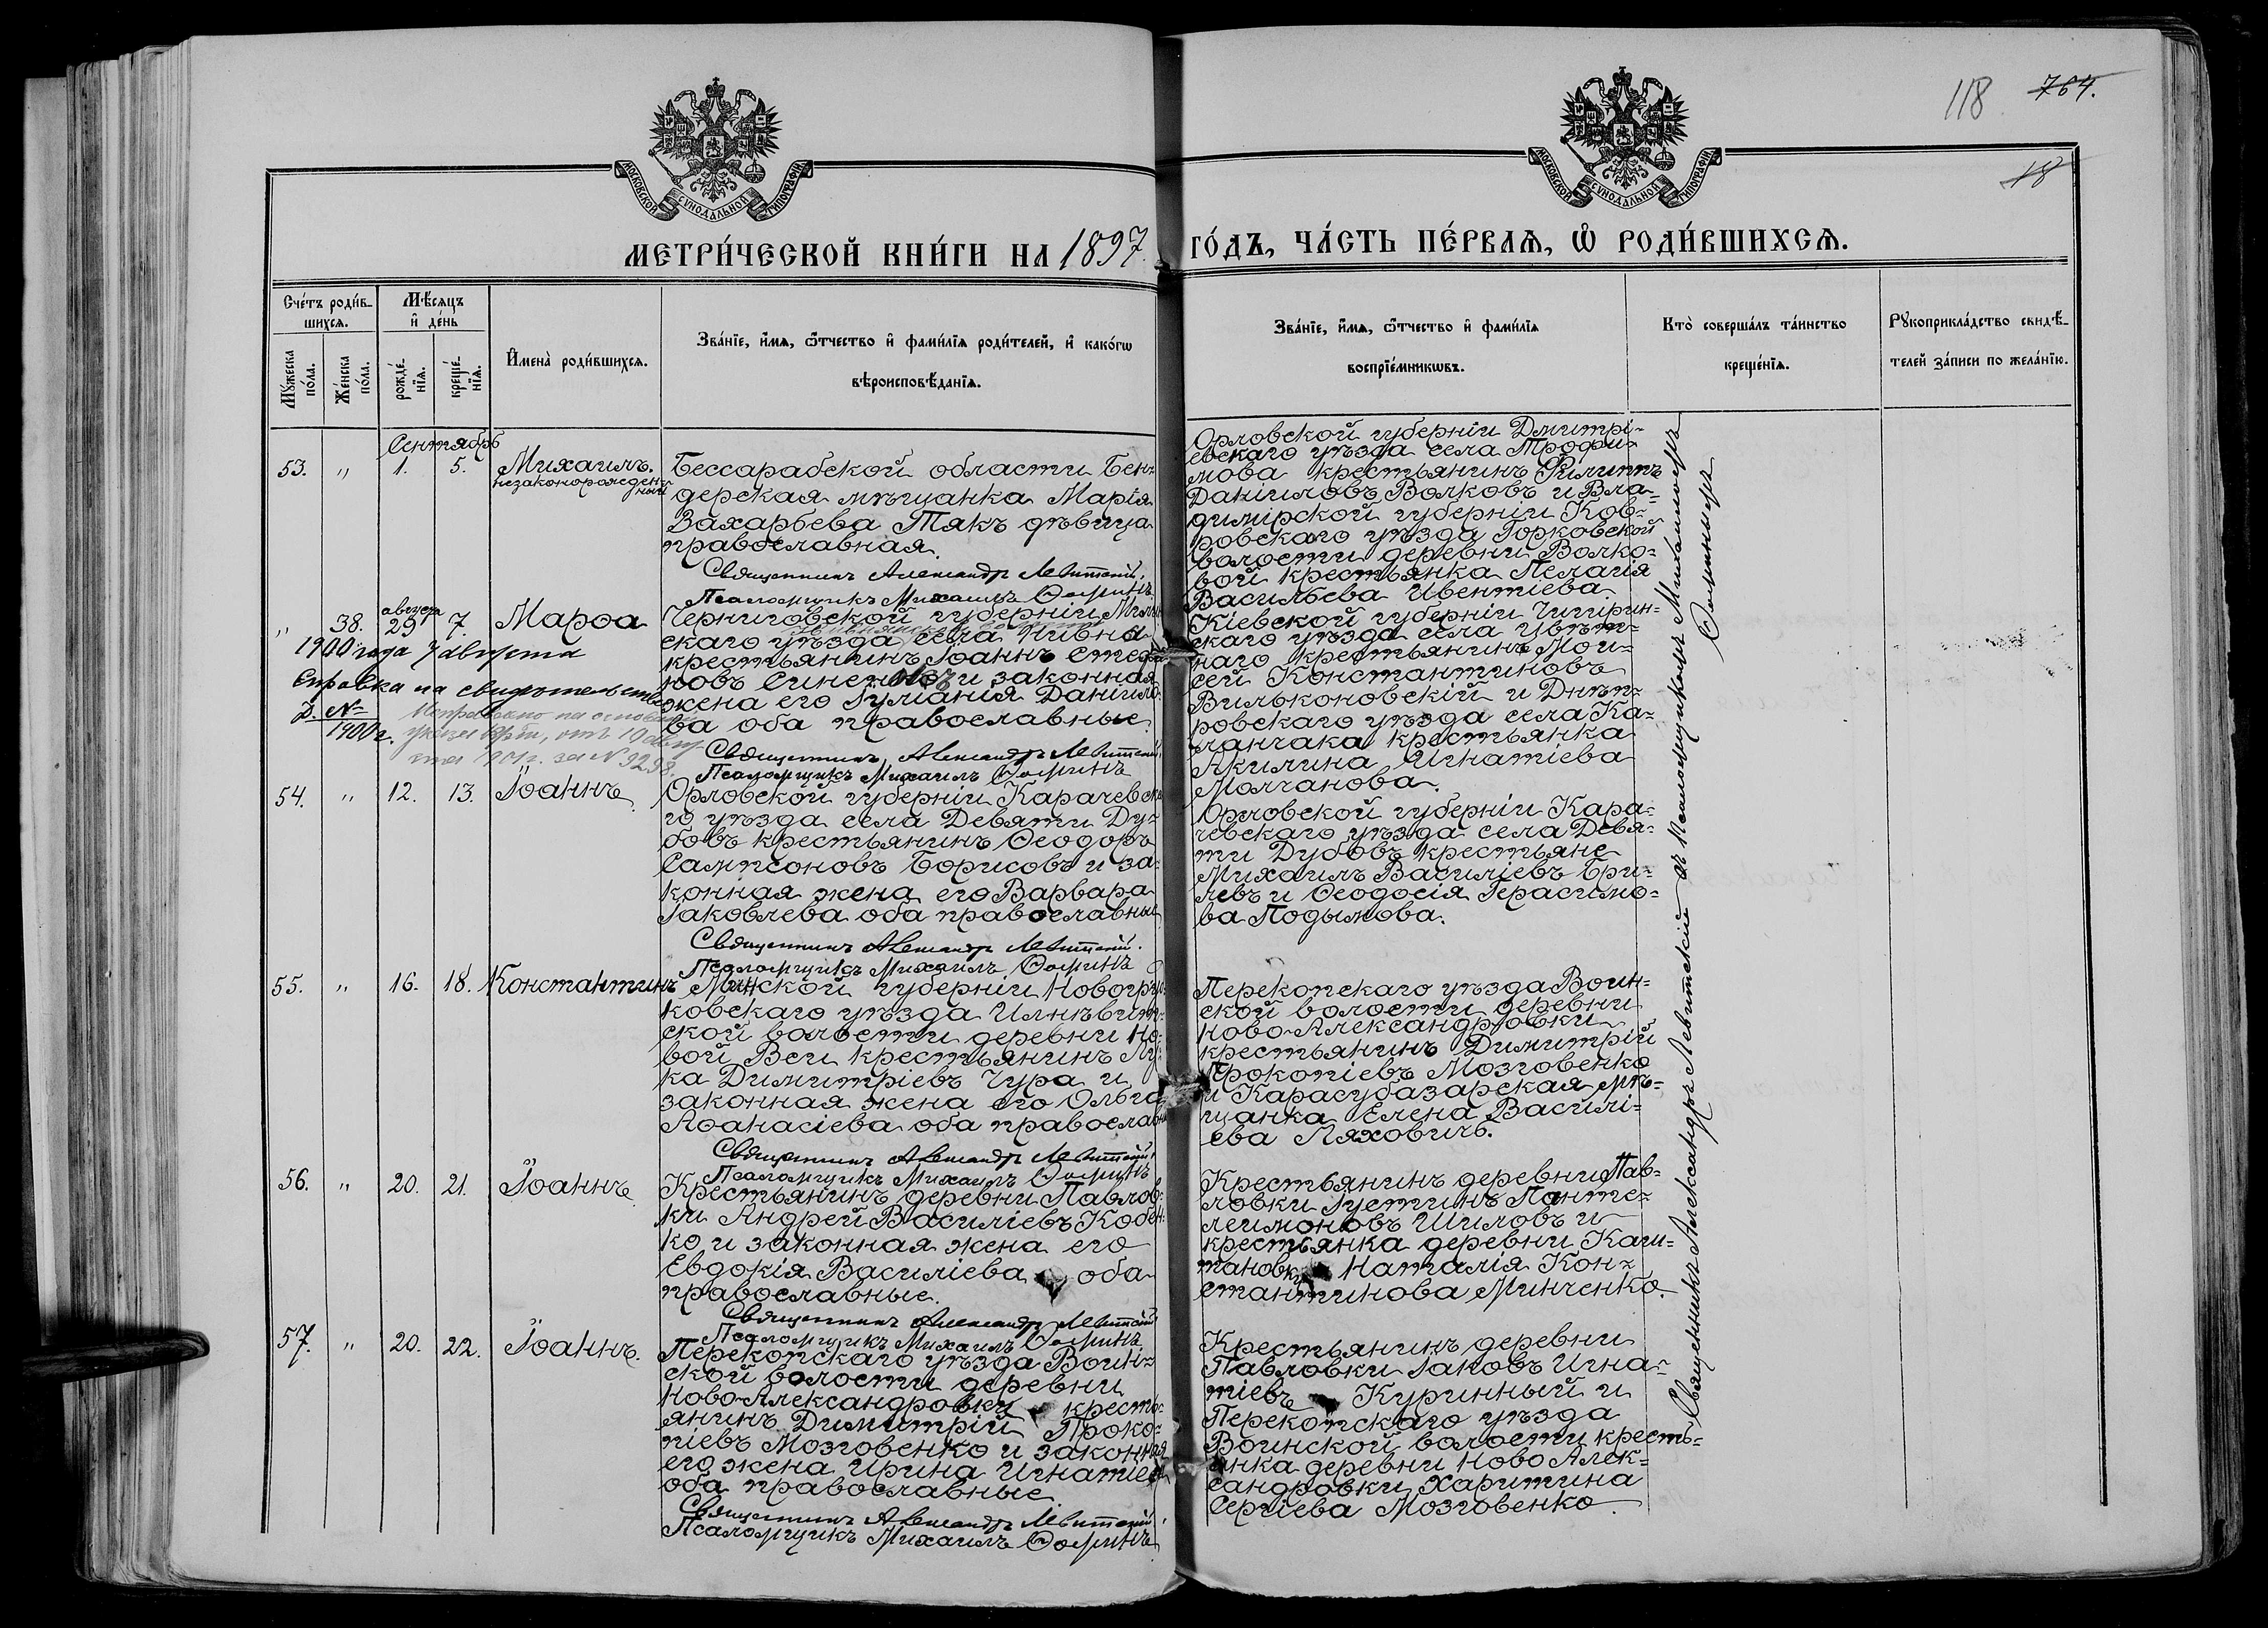 118 764.
18
МОСКОВСКОЙ СѴНОДАЛЬНОЙ ТИПОГРАФІИ
МОСКОВСКОЙ СѴНОДАЛЬНОЙ ТИПОГРАФІИ
МЕТРИ́ЧЕСКОЙ КНИ́ГИ НА 1897 ГО́ДЪ, ЧА́СТЬ ПЕ́РВАѦ, Ѡ҆ РОДИ́ВШИХСѦ.
Сче́тъ роди́в-
шихсѧ.
Мꙋ́жеска
по́ла.
Же́нска
по́ла.
Мѣ́сѧцъ
и҆ де́нь
рожде́-
нїѧ.
креще́-
нїѧ.
И҆мена̀ роди́вшихсѧ.
Зва́нїе, и҆́мѧ, ѻ҆́тчество и҆ фамѝлїѧ роди́телей, и҆ како́гѡ
вѣроисповѣ́данїѧ.
Зва́нїе, и҆́мѧ, ѻ҆́тчество и҆ фами́лїѧ
воспрїе́мникѡвъ.
Кто̀ соверша́лъ та́инство
креще́нїѧ.
Рꙋкоприкла́дство свидѣ́-
телей за́писи по жела́нїю.
Сентябрь
53. " 1. 5. Михаилъ.
незаконорожден-
ный
Бессарабской области Бен-
дерская мѣщанка Марія
Захарьева Тякъ дѣвица
православная.
Священникъ Александръ Левитскій.
Псаломщикъ Михаилъ Ѳоминъ
Орловской губерніи Дмитрі-
евскаго уѣзда села Трофи-
мова крестьянинъ Филиппъ
Даніиловъ Волковъ и Вла-
димірской губерніи Ков-
ровскаго уѣзда Горковской
волости деревни Волко-
вой крестьянка Пелагія
Васильева Ивентіева.
августа
" 38. 29 7. Марѳа
Черниговской губерніи Мглин-
скаго уѣзда села Нивна
крестьянинъ Іоаннъ Стефа
новъ и законная
жена его Іуліанія Даніило-
ва оба православные.
Священникъ Александръ Левитскій
Псаломщикъ Михаилъ Ѳоминъ
1900 года 7 августа
Справка на свидѣтельство
Д. №
1900 г.
Исправлено на основаніи
указа отъ 10 авгу-
ста 1901 г. за № 9298.
Кіевской губерніи Чигирин-
скаго уѣзда села Цвѣт-
наго крестьянинъ Мои-
сей Константиновъ
Вильконовскій и Днѣп-
ровскаго уѣзда села Ка-
ланчака крестьянка
Акилина Игнатіева
Молчанова.
54. " 12. 13. Іоаннъ
Орловской губерніи Карачевска
го уѣзда села Девяти Ду-
бовъ крестьянинъ Ѳеодоръ
Сампсоновъ Борисовъ и за-
конная жена его Варвара
Іаковлева оба православные
Священникъ Александръ Левитскій.
Псаломщикъ Михаилъ Ѳоминъ
Орловской губерніи Кара-
чевскаго уѣзда села Девя-
ти Дубовъ крестьяне
Михаилъ Василіевъ Бри-
левъ и Ѳеодосія Герасимо-
ва Подымова.
55. " 16. 18. Константинъ
Минской губерніи Новогру-
ковскаго уѣзда
ской волости деревни Но-
вой Веси крестьянинъ Лу-
ка Димитріевъ Чура и
законная жена его Ольга
Аѳанасіева оба православны
Священникъ Александръ Левитскій.
Псаломщикъ Михаилъ Ѳоминъ
Перекопскаго уѣзда Воин-
ской волости деревни
Ново-Александровки
крестьянинъ Димитрій
Прокопіевъ Мозговенко
и Карасубазарская мѣ-
щанка Елена Василі-
ева Ляховичъ.
56. " 20. 21. Іоаннъ
Крестьянинъ деревни Павлов-
ки Андрей Василіевъ Кобен-
ко и законная жена его
Евдокія Василіева оба
православные.
Священникъ Александръ Левитскій
Псаломщикъ Михаилъ Ѳоминъ
Крестьянинъ деревни Пав-
ловки Іустинъ Панте-
леимоновъ Шиловъ и
крестьянка деревни Каш-
тановки Наталія Кон-
стантинова Минченко.
57. " 20. 22. Іоаннъ.
Перекопскаго уѣзда Воин-
ской волости деревни
Ново-Александровки кресть-
янинъ Димитрій Проко-
піевъ Мозговенко и законная
его жена Ирина Игнатіева
оба православные
Священникъ Александръ Левитскій
Псаломщикъ Михаилъ Ѳоминъ
Крестьянинъ деревни
Павловки Іаковъ Игна-
тіевъ Куринный и
Перекопскаго уѣзда
Воинской волости кресть-
янка деревни Ново Алек-
сандровки Харитина
Сергіева Мозговенко
Священникъ Александръ Левитскій съ Псаломщикомъ Михаиломъ
Ѳоминымъ